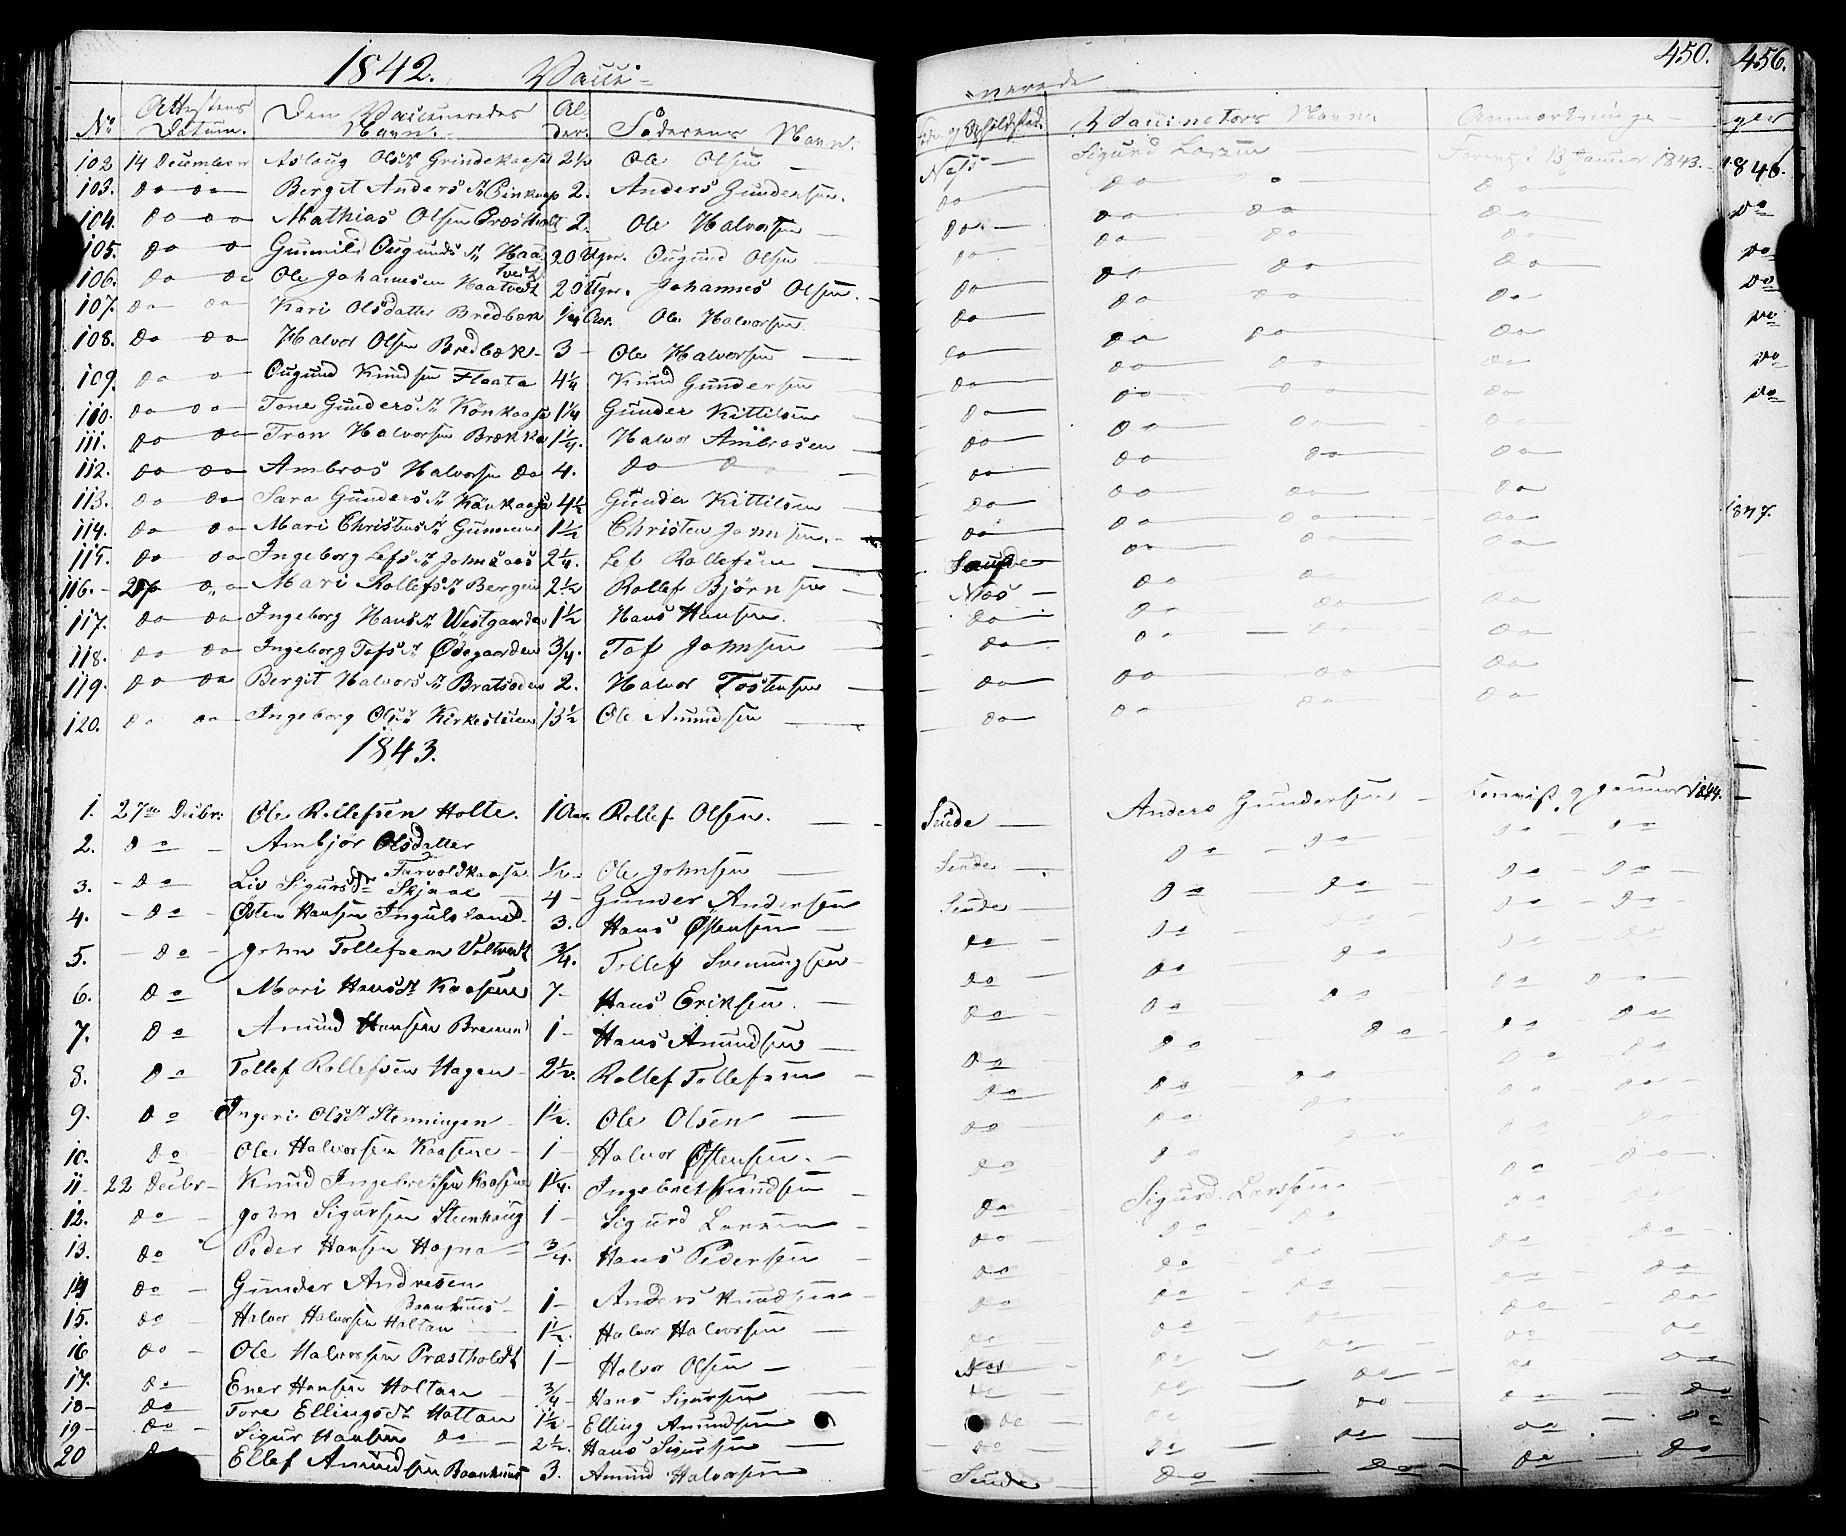 1842. Vacci-
No Attestens Datum. Den Vaccineredes Navn. Al-der. Faderens Navn.
102 14 December Aslaug Olsdr Grindekaasa 2½ Ole Olsen
103. do do Bergit Anders dr 2. Anders Gundersen.
104. do do Mathias Olsen Præstholt 2. Ole Halvorsen
105. do do Gunnild Ougunds dr Haatvedt 20 Uger. Ougund Olsen
106. do do Ole Johannesen Haatvedt 20 Uger. Johannes Olsen.
107. do do Kari Olsdatter Bredbæk ¼ Aar. Ole Halvorsen.
108. do do Halvor Olsen Bredbæk 3 Ole Halvorsen
109. do do Ougund Knudsen Flaata 4¼ Knud Gundersen
110. do do Tone Gunders dr Könkaasa 1¼ Gunder Kittilsen
111. do do Tron Halvorsen Brækka 1¼. Halvor Ambrosen
112. do do Ambros Halvorsen do 4. do do
113. do do Sara Gunders dr Könkaasa 4½ Gunder Kittilsen
114. do do Mari Christens dr 1½ Christen Johnsen.
115. do do Ingeborg Lefs dr Johnsaas 2¼. Lef Rollefsen
116. 27 do Mari Rollefs dr Bergen 2½ Rollef Björnsen
117. do do Ingeborg Hans dr Westgaarden 1½ Hans Hansen.
118. do do Ingeborg Tofs dr Ödegaarden 3/4. Tof Johnsen
119. do do Bergit Halvors dr Bratsoden 2. Halvor Tostensen
120. do do Ingeborg Ols dr Kirkesteien 13½ Ole Amundsen
1843.
1. 27de Decbr. Ole Rollefsen Holte. 10 Aar. Rollef Olsen.
2. do Ambjör Olsdatter Tarvoldkaasa ½ Ole Johnsen
3. do Liv Sigursdr Skjaae 4 Gunder Andersen
4. do Østen Hansen Ingulsland 3. Hans Østensen
5. do John Tollefsen Valtvedt 3/4. Tollef Svenungsen
6. do Mari Hans dr Kaasene 7 Hans Eriksen.
7. do Amund Hansen 1 Hans Amundsen
8. do Tollef Rollefsen Hagen 2½. Rollef Tollefsen
9. do Ingeri Ols dr Stenningen 1½. Ole Olsen
10. do Ole Halvorsen Kaasene 1 Halvor Østensen.
11 22 Decbr Knud Ingebretsen Kaasene 1¼. Ingebret Knudsen
12. do John Sigursen Steenhaug 1 Sigurd Larsen
13. do Peder Hansen Hogna 3/4. Hans Pedersen
14 do Gunder Andresen Baanhuus 1 Anders Knudsen
15. do Halvor Halvorsen Holtan 1½. Halvor Halvorsen
16 do Ole Halvorsen Præstholdt 1 Halvor Olsen
17. do Ener Hansen Holtan 3/4 Hans Sigursen
18 do Tore Ellings dr Holtan 1½ Elling Amundsen
19 do Sigur Hansen do 2½. Hans Sigursen
20 do Ellef Amundsen Baanhuus 3. Amund Halvorsen
-nerede 450.
Føde og Opholdssted. Vaccinators Navn. Anmærkninger
Næs Sigurd Larsen 13 Januar 1843.
do do do do
do do do do
do do do do
do do do do
do do do do
do do do do
do do do do
do do do do
do do do do
do do do do
do do do do
do do do do
Saude do do do
Næs do do do
do do do do
do do do do
do do do do
do do do do
Seude Anders Gundersen Januar 1844.
Seude do do do do
Seude do do do do
do do do do do
do do do do do
do do do do do
do do do do do
do do do do do
do do do do do
do do do do do
do Sigurd Larsen do do
do do do do do
do do do do do
do do do do do
do do do do do
Næs do do do do
do do do do do
do do do do do
do do do do do
Seude do do do do
456.
1846.
do
do
do
do
do
do
1847.